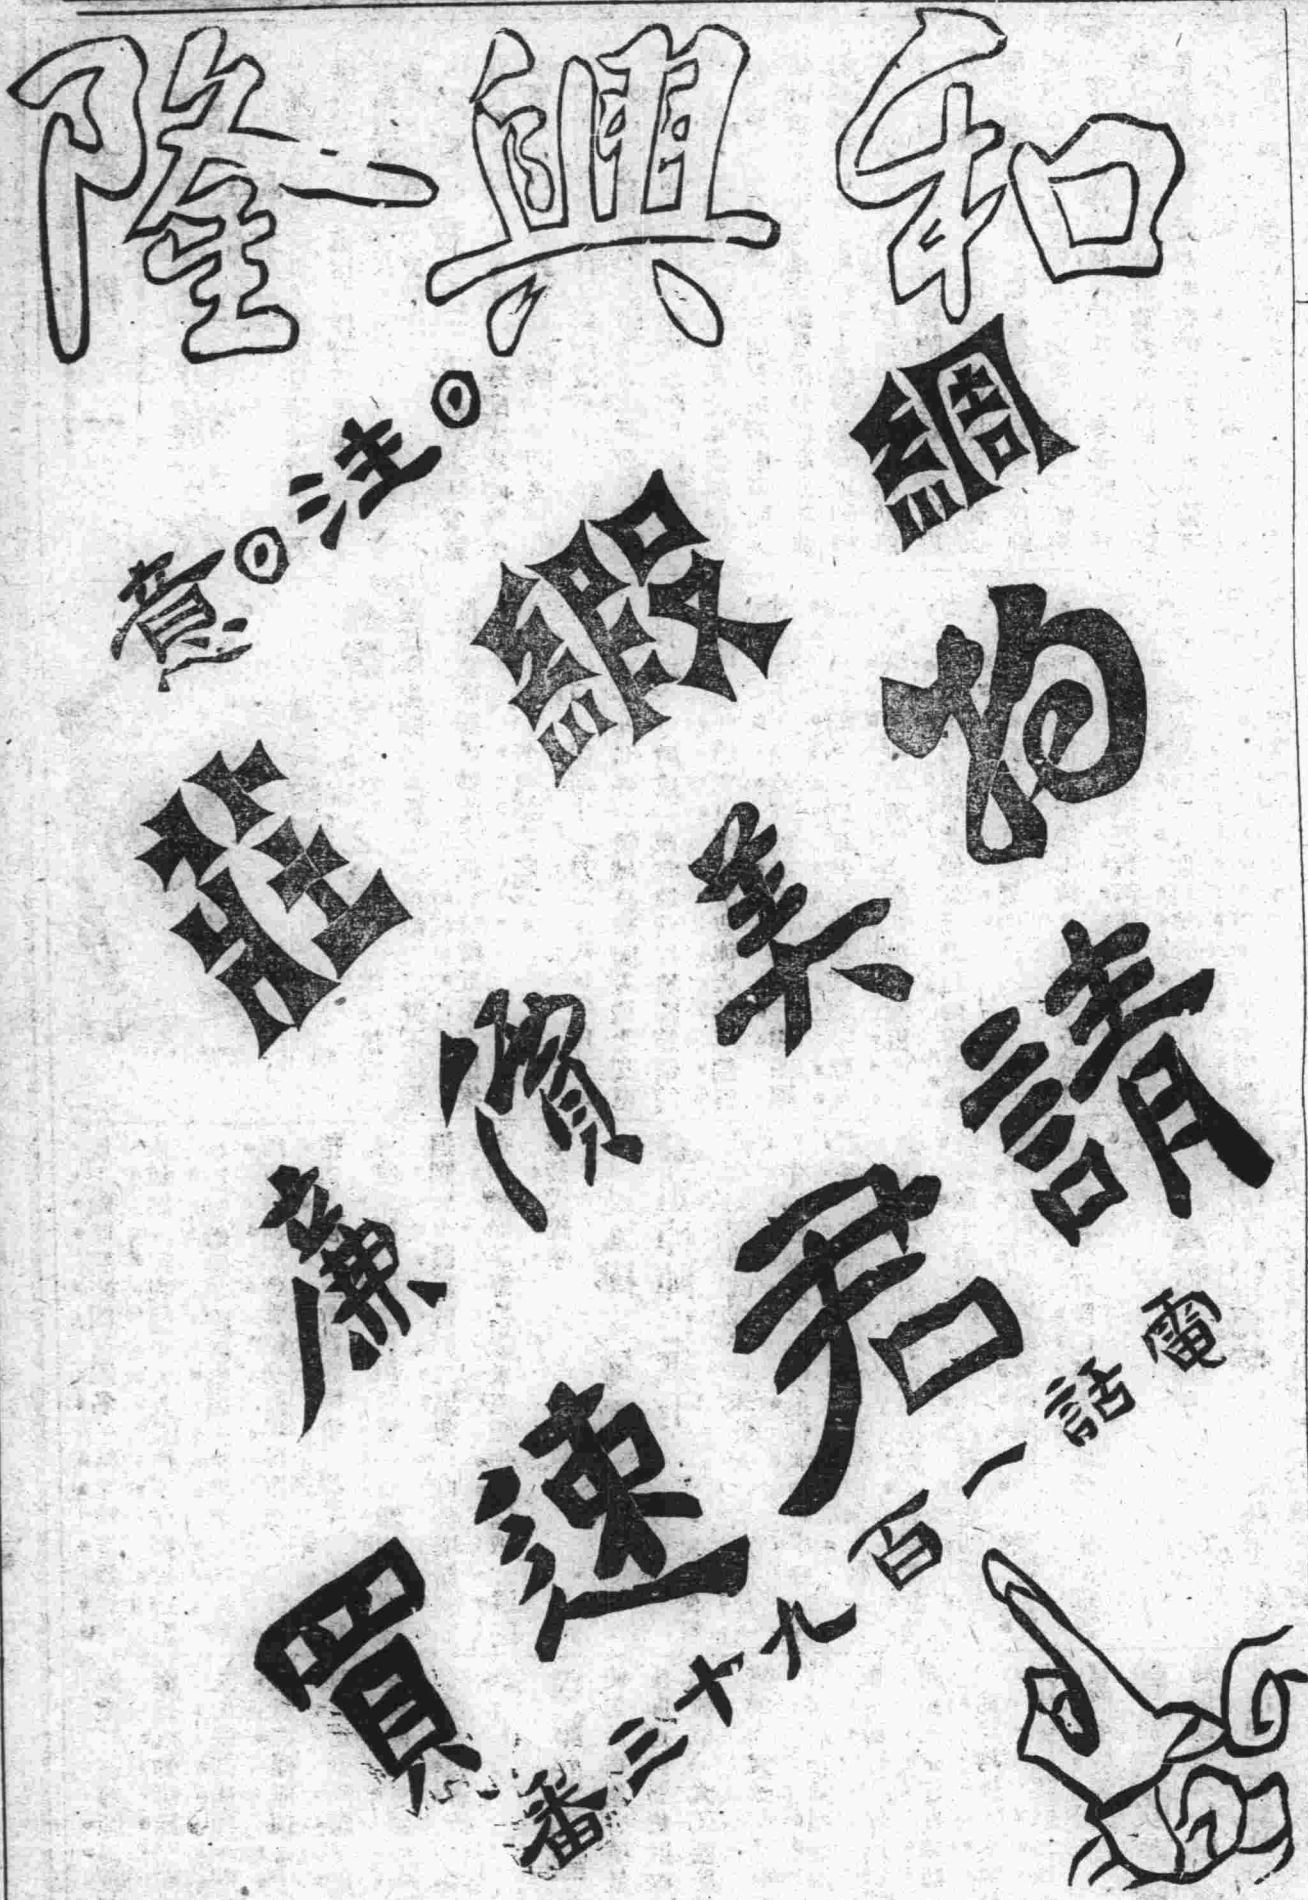 和興隆
◎注◎意
綢緞莊
物美價廉
請君速買
電話一百九十三番